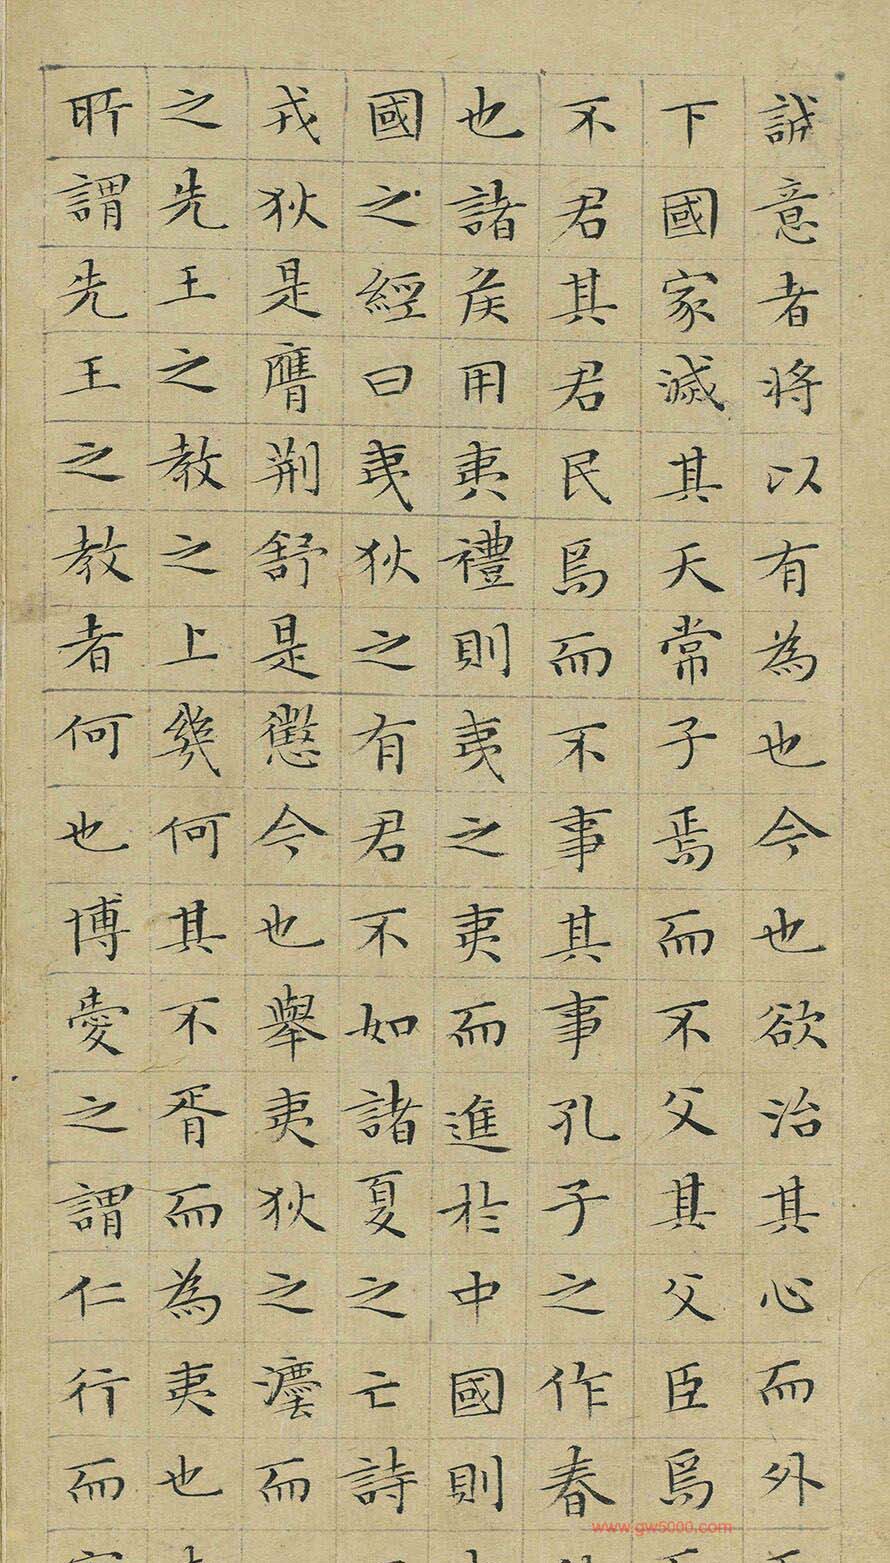 誠意者將以有為也今也欲治其心而外
下國家滅其天常子焉而不父其父臣焉
不君其君民焉而不事其事孔子之作春
也諸侯用夷禮則夷之夷而進於中國則
國之經曰夷狄之有君不如諸夏之亡詩
戎狄是膺荆舒是懲今也舉夷狄之灋而
之先王之教之上幾何其不胥而為夷也
所謂先王之教者何也博愛之謂仁行而
www.gw5000.com